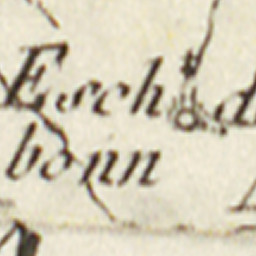 Esch
bonn